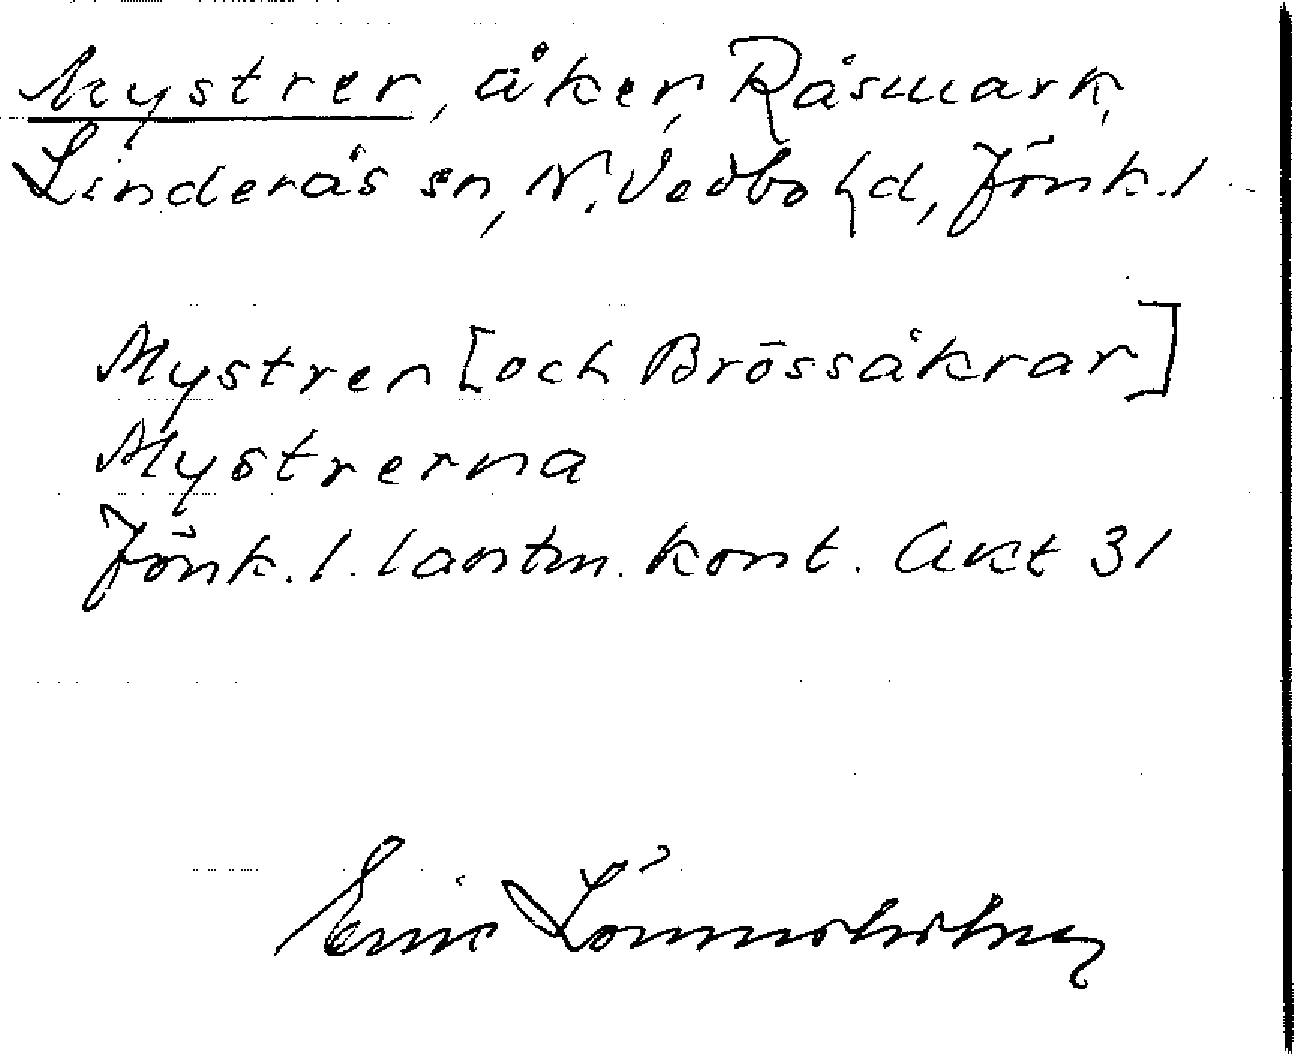 Mystrer, åker, Råsmark,
Linderås sn, N. Vedbo hd, Jönk. l
Mystren [och Brössåkrar]
Mystrerna
Jönk. l. lantm. kont. Akt 31
Eric Lönnholm